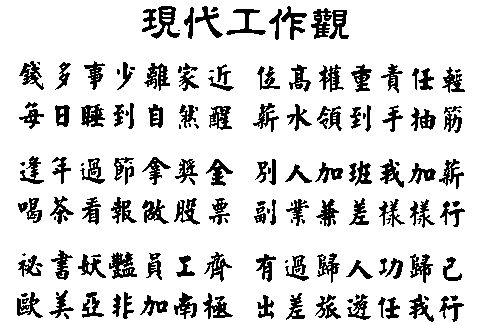 現代工作觀
錢多事少離家近 位高權重責任輕
每日睡到自然醒 薪水領到手抽筋
逢年過節拿獎金 別人加班我加薪
喝茶看報做股票 副業兼差樣樣行
祕書妖豔員工齊 有過歸人功歸己
歐美亞非加南極 出差旅遊任我行